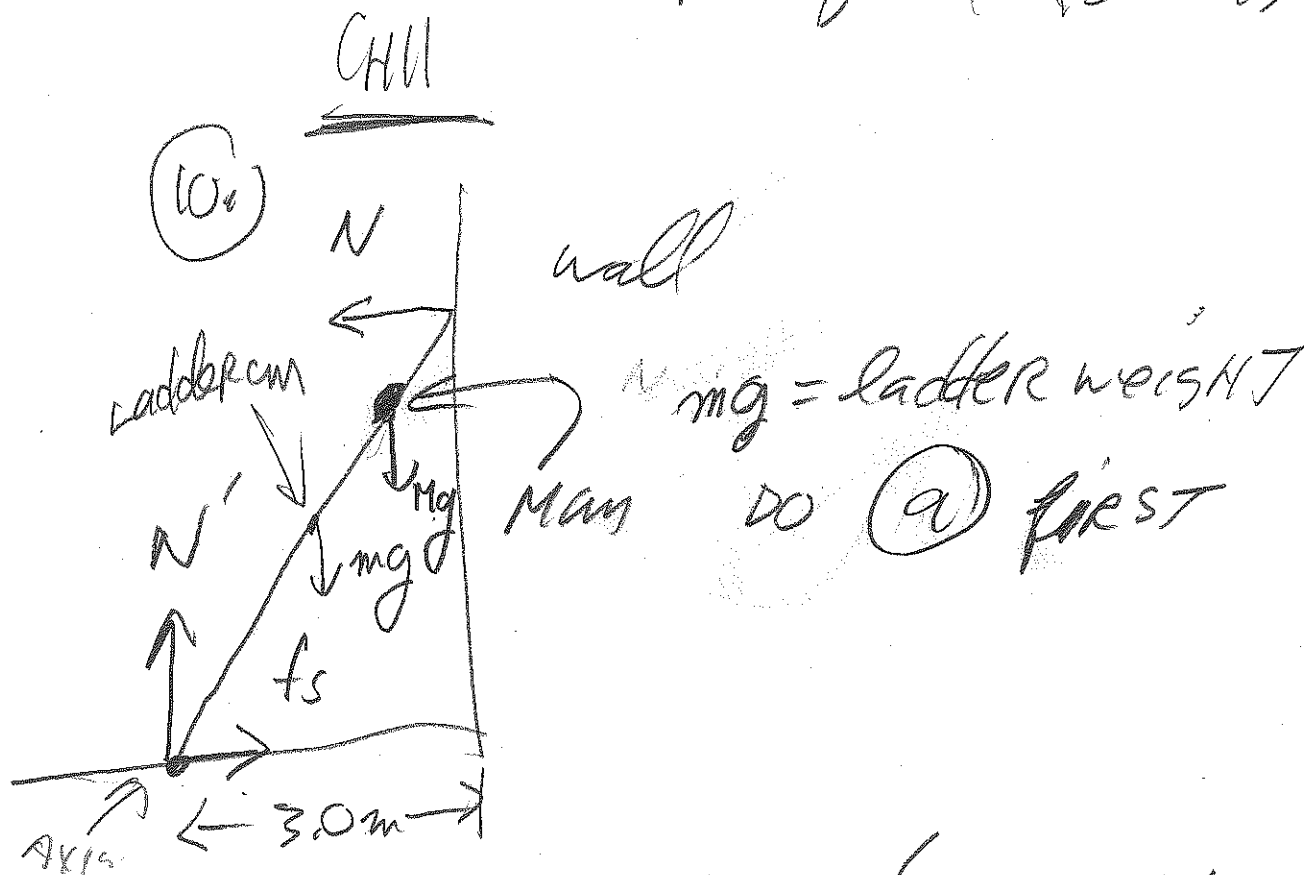 CH11
10.
N
wall
Ladder cm
mg = ladder weight
Mg
Man
DO (a) first
N'
mg
fs
3.0m
Axis